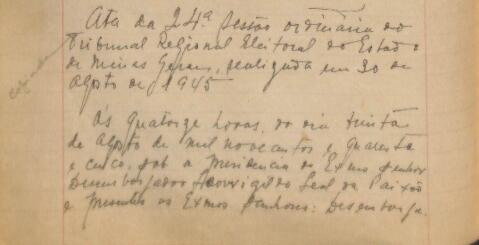 Ata da 24ª sessão ordinária do
Tribunal Regional Eleitoral do Estado
de Minas Gerais, realizada em 30 de
Agosto de 1945
Ás quatorze horas, do dia trinta
de Agosto de mil novecentos e quarenta
e cinco, sob a presidencia do Exmo Senhor
Desembargador Leal da Paixão
e presentes os Exmos Senhores: Desembarga-